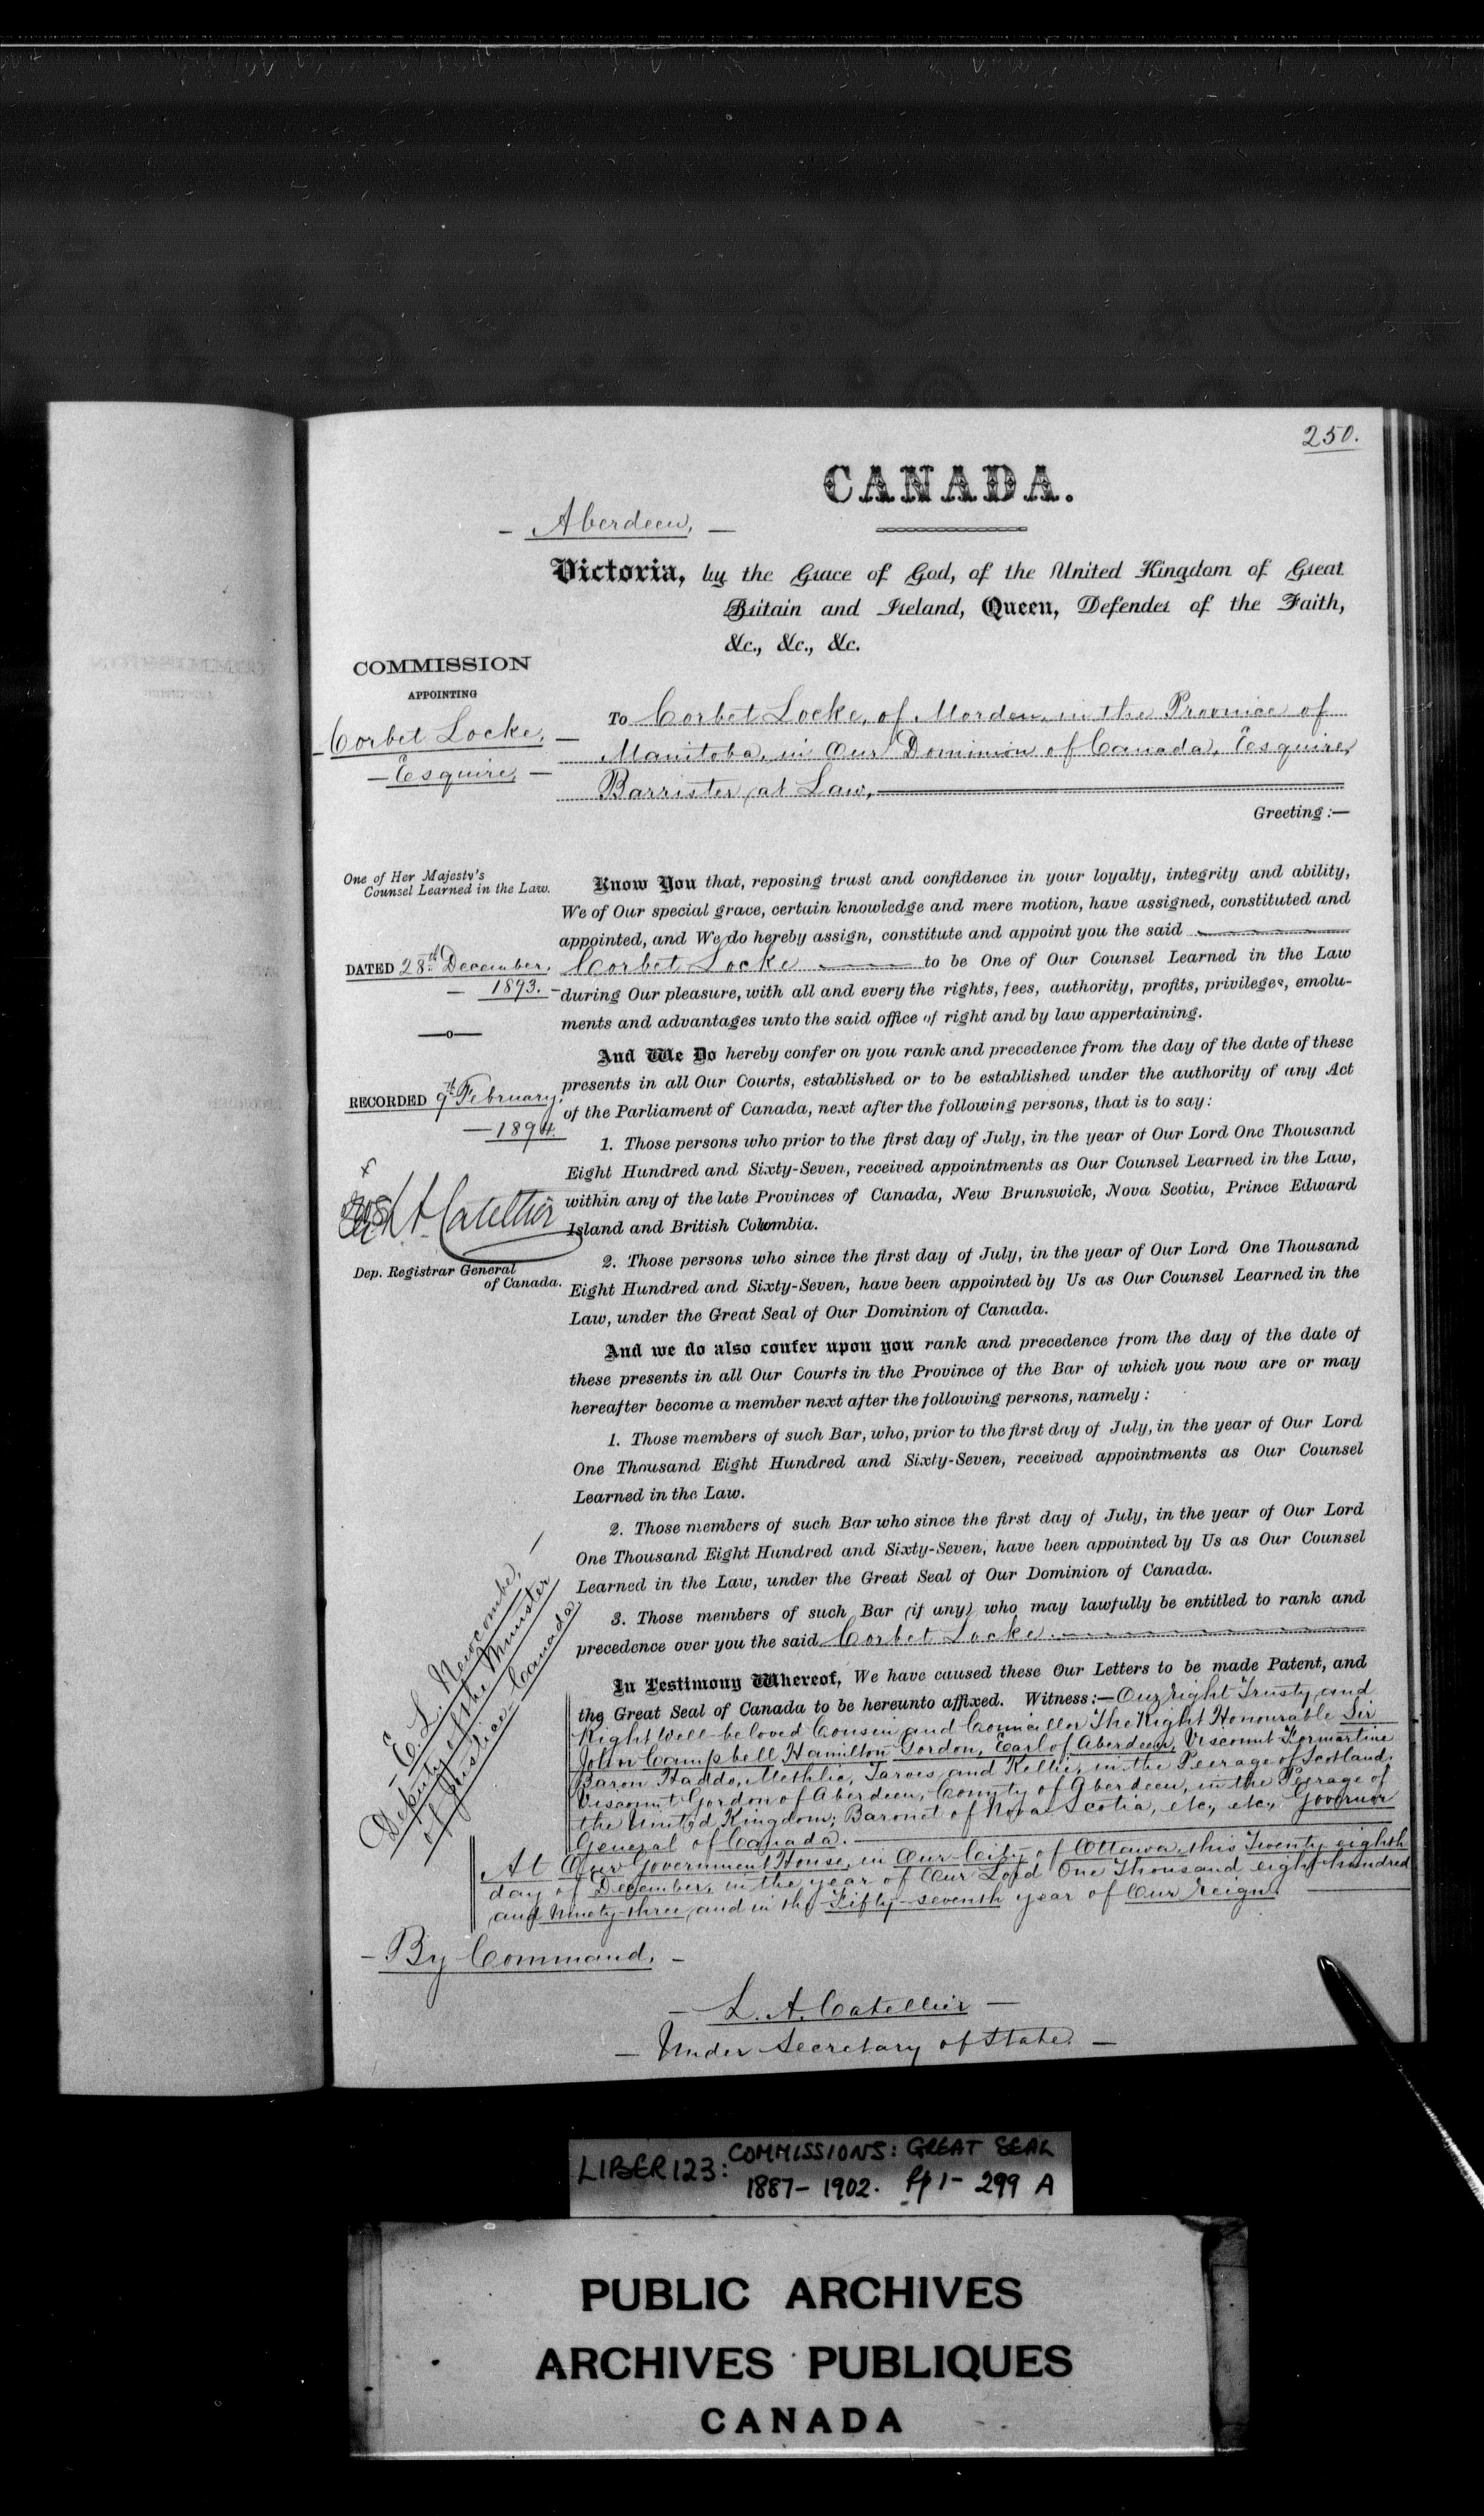 250.
CANADA.
- Aberdeen, -
Victoria, by the Grace of God, of the United Kingdom of Great
Britain and Ireland, Queen, Defender of the Faith,
&c., &c., &c.
COMMISSION
APPOINTING
- Corbet Locke, -
- Esquire, -
To Corbet Locke, of Morden, in the Province of
Manitoba, in Our Dominion of Canada, Esquire,
Barrister at Law,
Greeting:—
One of Her Majesty's
Counsel Learned in the Law.
DATED 28th December,
- 1893. -
RECORDED 9th February,
- 1894.
L. A. Catellier
Dep. Registrar General
of Canada.
Know You that, reposing trust and confidence in your loyalty, integrity and ability,
We of Our special grace, certain knowledge and mere motion, have assigned, constituted and
appointed, and We do hereby assign, constitute and appoint you the said
Corbet Locke to be One of Our Counsel Learned in the Law
during Our pleasure, with all and every the rights, fees, authority, profits, privileges, emolu-
ments and advantages unto the said office of right and by law appertaining.
And We Do hereby confer on you rank and precedence from the day of the date of these
presents in all Our Courts, established or to be established under the authority of any Act
of the Parliament of Canada, next after the following persons, that is to say:
1. Those persons who prior to the first day of July, in the year of Our Lord One Thousand
Eight Hundred and Sixty-Seven, received appointments as Our Counsel Learned in the Law,
within any of the late Provinces of Canada, New Brunswick, Nova Scotia, Prince Edward
Island and British Columbia.
2. Those persons who since the first day of July, in the year of Our Lord One Thousand
Eight Hundred and Sixty-Seven, have been appointed by Us as Our Counsel Learned in the
Law, under the Great Seal of Our Dominion of Canada.
And we do also confer upon you rank and precedence from the day of the date of
these presents in all Our Courts in the Province of the Bar of which you now are or may
hereafter become a member next after the following persons, namely:
1. Those members of such Bar, who, prior to the first day of July, in the year of Our Lord
One Thousand Eight Hundred and Sixty-Seven, received appointments as Our Counsel
Learned in the Law.
2. Those members of such Bar who since the first day of July, in the year of Our Lord
One Thousand Eight Hundred and Sixty-Seven, have been appointed by Us as Our Counsel
Learned in the Law, under the Great Seal of Our Dominion of Canada.
3. Those members of such Bar (if any) who may lawfully be entitled to rank and
precedence over you the said Corbet Locke.
In Testimony Whereof, We have caused these Our Letters to be made Patent, and
the Great Seal of Canada to be hereunto affixed. Witness:— Our Right Trusty and
Right Well-beloved Cousin and Councillor The Right Honourable Sir
John Campbell Hamilton-Gordon, Earl of Aberdeen, Viscount Formartine
Baron Haddo, Methlic, Tarves and Kellie, in the Peerage of Scotland;
Viscount Gordon of Aberdeen, County of Aberdeen, in the Peerage of
the United Kingdom; Baronet of Nova Scotia, etc., etc., Governor
General of Canada.
At Our Government House, in Our City of Ottawa, this Twenty eighth
day of December, in the year of Our Lord One Thousand eight hundred
and ninety-three, and in the Fifty-seventh year of Our Reign.
- E. L. Newcombe, -
Deputy of the Minister
of Justice Canada
- By Command. -
- L. A. Catellier -
- Under Secretary of State. -
LIBER 123: COMMISSIONS: GREAT SEAL
1887- 1902. Pp 1- 299 A
PUBLIC ARCHIVES
ARCHIVES PUBLIQUES
CANADA